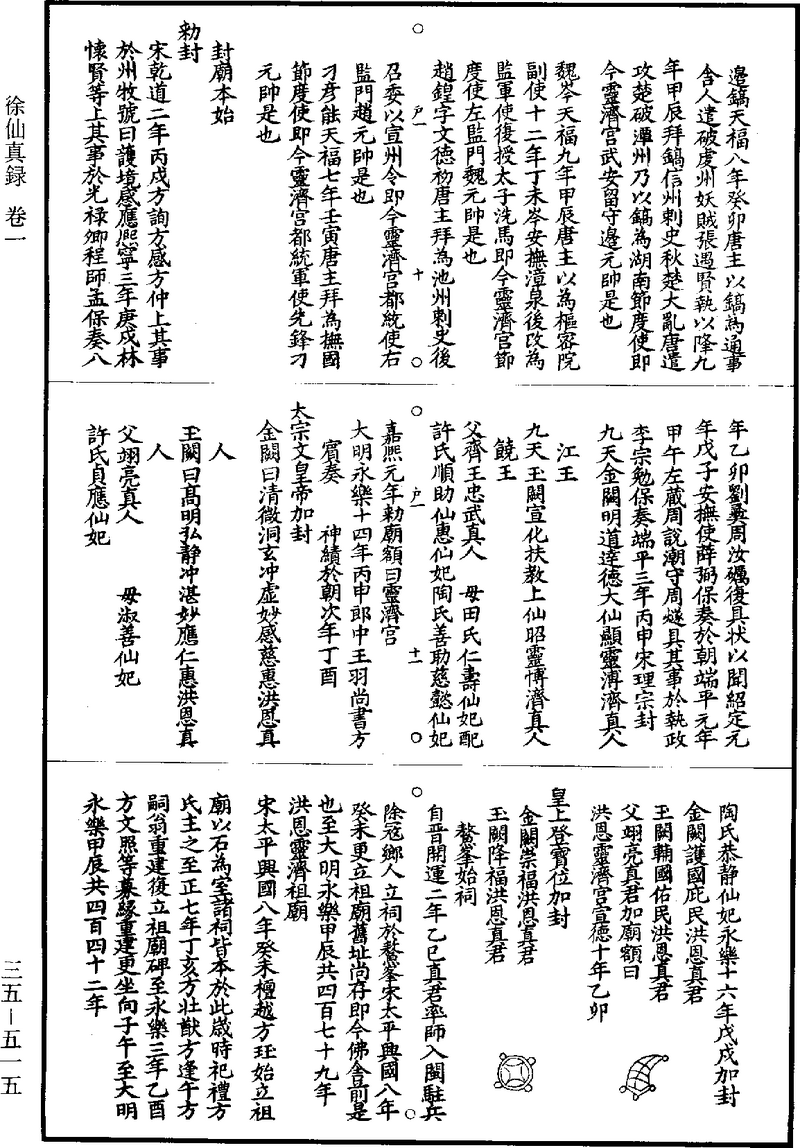 徐仙真録 卷一
三五—五一五
邉鎬天福八年癸卯唐主以鎬為通事
舍人遣破虔州妖賊張遇賢執以降九
年甲辰拜鎬信州刺史秋楚大亂唐遣
攻楚破潭州乃以鎬為湖南節度使即
今靈濟宫武安留守邉元帥是也
魏岑天福九年甲辰唐主以為樞密院
副使十二年丁未岑安撫漳泉後改為
監軍使復授太子洗馬即今靈濟宫節
度使左監門魏元帥是也
趙鍠字文德初唐主拜為池州刺史後
户一 十
召委以宣州令即今靈濟宫都統使右
監門趙元帥是也
刁彦能天福七年壬寅唐主拜為撫國
節度使即今靈濟宫都統軍使先鋒刁
元帥是也
封廟本始
勑封
宋乾道二年丙戍方詢方感方仲上其事
於州牧號曰護境感應熈寧三年庚戍林
懷賢等上其事於光禄卿程師孟保奏八
年乙卯劉彝周汝礪復具状以聞紹定元
年戊子安撫使薛弼保奏於朝端平元年
甲午左蔵周説潮守周燧具其事於執政
李宗勉保奏端平三年丙申宋理宗封
九天金闕明道達德大仙顯靈溥濟真人
江王
九天玉闕宣化扶教上仙昭靈博濟真人
饒王
父齊王忠武真人 毋田氏仁壽仙妃配
許氏順助仙惠仙妃陶氏善助慈懿仙妃
户一 十一
嘉熈元年勑廟額曰靈濟宫
大明永樂十四年丙申郎中王羽尚書方
賓奏 神績於朝次年丁酉
太宗文皇帝加封
金闕曰清微洞玄冲虚妙感慈惠洪恩真
人
玉闕曰髙明弘静冲湛妙應仁惠洪恩真
人
父翊亮真人 毋淑善仙妃
許氏貞應仙妃
陶氏恭静仙妃永樂十六年戊戍加封
金闕護國庇民洪恩真君
玉闕輔國佑民洪恩真君
父翊亮真君加廟額曰
洪恩靈濟宫宣德十年乙卯
皇上登寶位加封
金闕崇福洪恩真君
玉闕降福洪恩真君
鰲峯始祠
自晋開運二年乙巳真君率師入閩駐兵
除冦鄉人立祠於鰲峯宋太平興國八年
癸未更立祖廟舊址尚存即今佛舎前是
也至大明永樂甲辰共四百七十九年
洪恩靈濟祖廟
宋太平興國八年癸未檀越方珏始立祖
廟以石為室諸祠皆本於此歳時祀禮方
氏主之至正七年丁亥方壮猷方逢午方
嗣翁重建復立祖廟碑至永樂三年乙酉
方文照等募縁重建更坐向子午至大明
永樂甲辰共四百四十二年